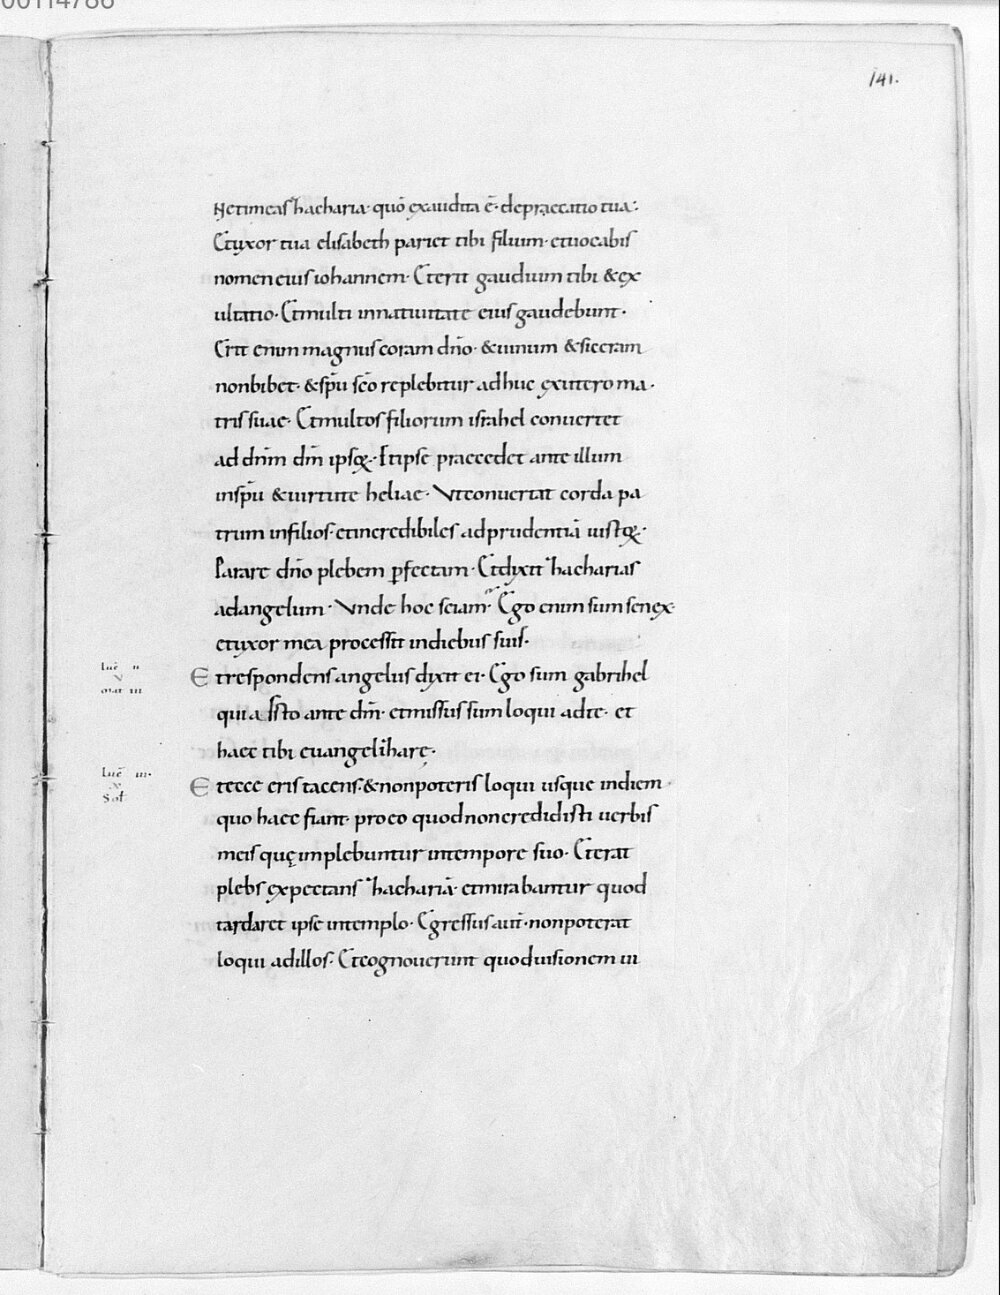 00114786
141.
Netimeas hacharia· quō exaudita ē· depraecatio tua·
Etuxor tua elisabeth pariet tibi filium· etuocabis
nomen eius iohannem· Eterit gaudium tibi &ex
ultatio· Etmulti innatiuitate eius gaudebunt·
Erit enim magnus coram dn̄o· &uinum &siceram
nonbibet· &sp̄u sc̄o replebitur adhuc exutero ma·
tris suae· Etmultos filiorum israhel conuertet
ad dn̄m dm̄ ipsoꝝ· Etipse praecedet ante illum
insp̄u &uirtute heliae· Vtconuertat corda pa
trum infilios· etincredibiles adprudentiā iustoꝝ·
Parare dn̄o plebem ꝑfectam· Etdixit hacharias
adangelum· Vnde hoc sciam· Ego enim sum senex·
etuxor mea processit indiebus suis·
Luc̄ II
V
mat III
Etrespondens angelus dixit ei· Ego sum gabrihel
qui a sto ante dm̄· etmissus sum loqui adte· et
haec tibi euangelihare·
Luc̄ III·
X
Sol
Etecce eris tacens·&nonpoteris loqui usque indiem
quo haec fiant· proeo quodnoncredidisti uerbis
meis quę implebuntur intempore suo· Eterat
plebs expectans hachariā· etmirabantur quod
tardaret ipse intemplo· Egressus aut̄· nonpoterat
loqui adillos· Etcognouerunt quoduisionem ui